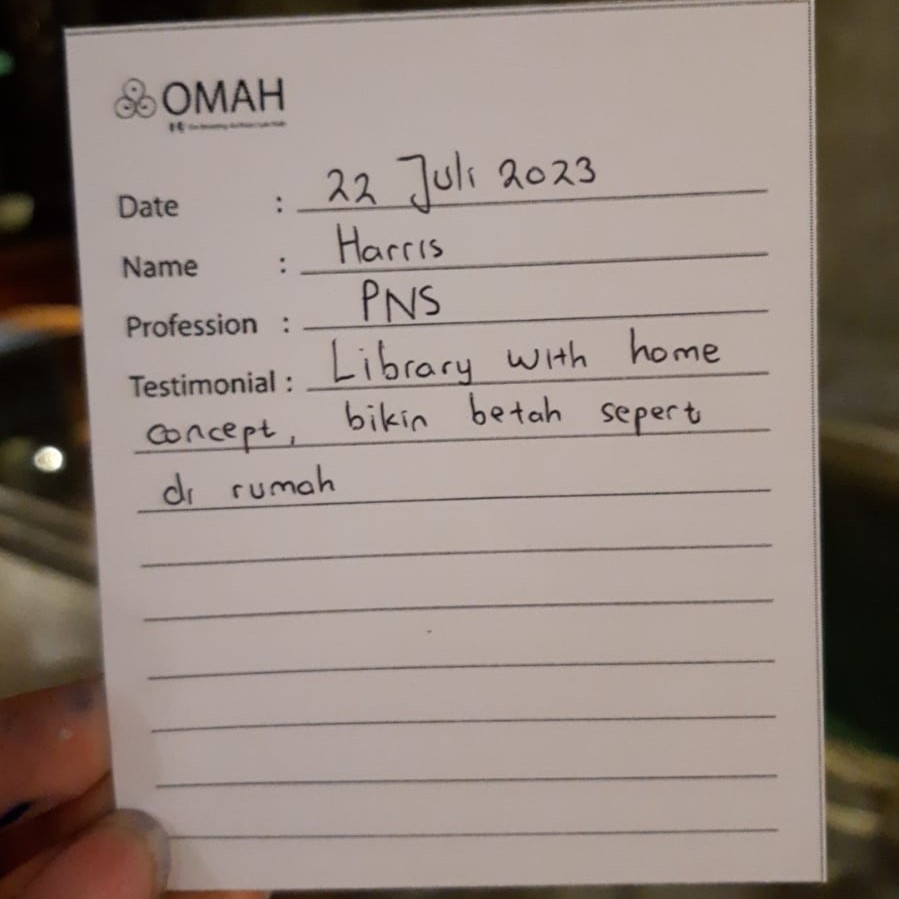 OMAH
Date : 22 Juli 2023
Name : Harris
Profession : PNS
Testimonial : Library with home
concept, bikin betah seperti
di rumah